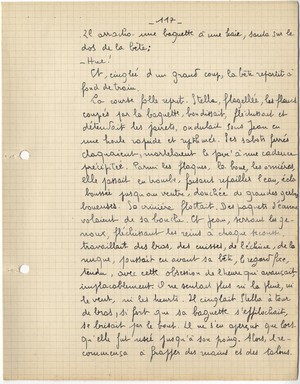 _ 117 _
Il arracha une baguette à une haie, sauta sur le
dos de la bête:
_ Hue!
Et, cinglée d'un grand coup, la bête repartit à
fond de train.
La course folle reprit. Stella, flagellée, les flancs
coupés par la baguette, bondissait, fléchissant et
détendant les jarrets, ondulant sous Jean en
une houle rapide et rythmée. Ses sabots ferrés
claquaient, martelaient le pavé à une cadence
précipitée. Parmi les flaques, la boue, les ornières,
elle passait en trombe, faisant rejaillir l'eau, écla
boussée jusqu'au ventre, douchée de grandes gerbes
boueuses. Sa crinière flottait. Des paquets d'écume
volaient de sa bouche. Et Jean, serrant les ge-
noux, fléchissant les reins à chaque
travaillant des bras, des cuisses, de l'échine, de la
nuque, poussait en avant sa bête, le regard fixe,
tendu, avec cette obsession de l'heure qui avançait
implacablement. Il ne sentait plus ni la pluie, ni
le vent, ni les heurts. Il cinglait Stella à tour
de bras, si fort que sa baguette s'effilochait,
se brisait par le bout. Il ne s'en aperçut que lors
qu'elle fut usée jusqu'à son poing. Alors, il re-
commença à frapper des mains et des talons.